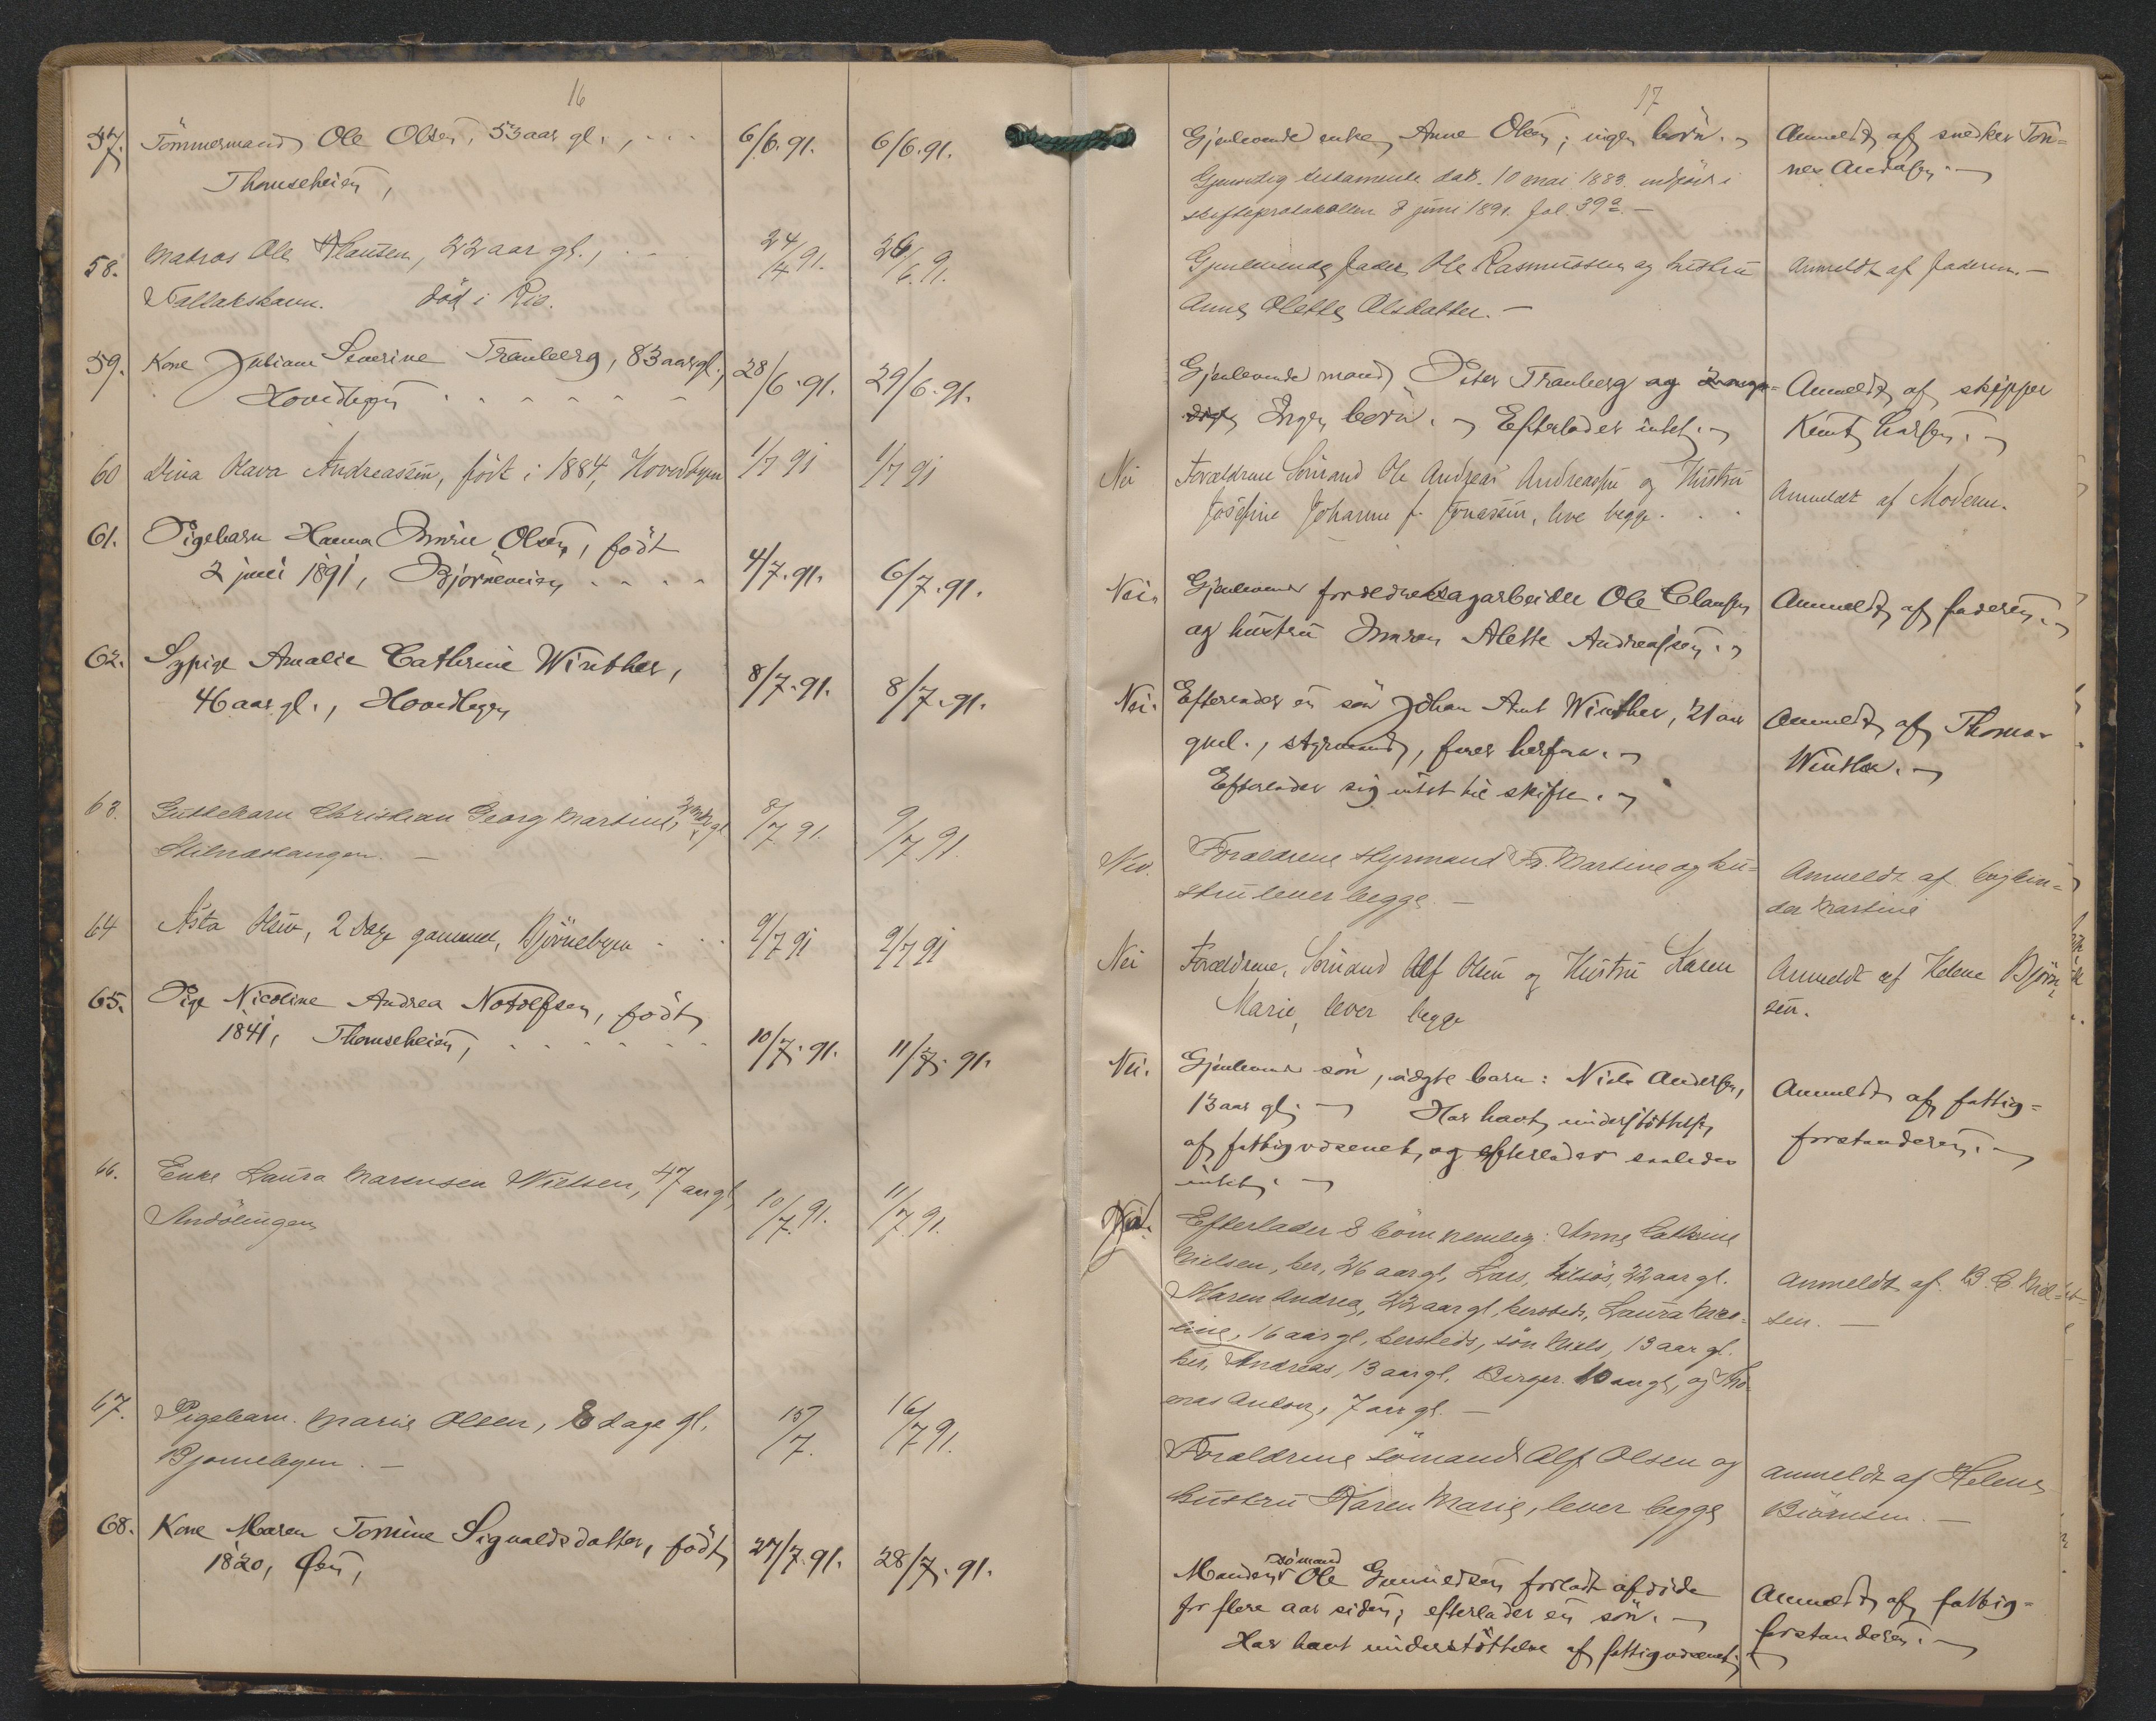 16
57. Tömmermand Ole Olsen, 53 aar gl., 6/6.91. 6/6.91.
Thomseheien,
58. Matros Ole Clausen, 22 aar gl., 24/4 91. 26/6 91.
Fallakshavn. död i Rio.
59. Kone Juliane Severine Tranberg, 83 aar gl., 28/6.91. 29/6.91.
Hovedbyen
60 Dina Olava Andreassen, født i 1884, Hovedbyen 1/7 91 1/7 91
61. Pigebarn Hanna Marie Olsen, født
2 juni 1891, Bjørnevien 4/7.91. 6/7.91.
62. Sypige Amalie Cathrine Winther,
46 aar gl., Hovedbyen 8/7.91. 8/7.91.
63. Guttebarn Christian Georg Martini, gl 8/7 91. 9/7 91.
64 Asta Olsen, 2 Dage gammel, Björnebyen 9/7 91 9/7 91
65. Pige Nicoline Andrea Notolfsen, født
1841, Thomseheien, 10/7.91. 11/7.91.
66. Enke Laura Marensen Nielsen, 47 aar gl, 10/7.91. 11/7 91.
67. Pigebarn. Marie Olsen, 8 dage gl. 15/7. 16/7 91.
Bjornebyen. —
68. Kone Maren Tomine Sigvaldsdatter, født 27/7.91. 28/7.91.
1820, Øen,
17
Gjenlevende enke, Anne Olsen; ingen börn. Anmeldt af snedker Tön-
Gjensidig testamente dat. 10 mai 1883. indfört i
skifteprotokollen 8 juni 1891. fol. 392. —
Gjenlevende fader Ole Rasmussen og hustru Anmeldt af faderen. —
Anne Olette Olsdatter. —
Gjenlevende mand, Peter Tranberg og Anmeldt af skipper
Ingen börn. Efterlader intet. Knut Larsen.
Nei Forældrene Sömand Ole Andreas Andreassen og Hustru Anmeldt af Moderen.
Josefine Johanne f. Jonassen, leve begge.
Nei. Gjenlevende forældre sagarbeider Ole Clausen Anmeldt af faderen.
og hustru Maren Alette Andreassen.
Nei. Efterlader en sön Johan Ant Winther, 21 aar Anmeldt af Thomas
gml., styrmand, farer herfra. Winther.
Efterlader sig intet til skifte.
Nei. Forældrene styrmand Fr. Martini og hu- Anmeldt af bogbin-
stru lever begge. — der Martini
Nei Forældrene, Sömand Alf Olsen og Hustru Karen Anmeldt af Helene Björn-
Marie, lever begge sen.
Nei. Gjenlevende sön, uægte barn: Niels Andersen, Anmeldt af fattig-
13 aar gl. — Har havt understöttelse forstanderen.
af fattigvæsenet, og efterlader saaledes
intet. —
Nei. Efterlader 8 börn nemlig: Anne Cathrine
Nielsen, her, 26 aar gl, Lars, tilsös, 22 aar gl. Anmeldt af B. C. Niel-
Maren Andrea, 22 aar gl, hersteds, Laura Nico- sen. —
line, 16 aar gl, hersteds, sön Niels, 13 aar gl.
her, Andreas, 13 aar gl. Birger 10 aar gl, og Tho-
mas Anton, 7 aar gl. —
Forældrene sömand Alf Olsen og Anmeldt af Helene
hustru Karen Marie, lever begge Björnsen. —
sömand
Manden Ole Gunuldsen forlodt afdöde Anmeldt af fattig-
for flere aar siden; efterlader en sön. — forstanderen. —
Har havt understöttelse af fattigvæsenet,